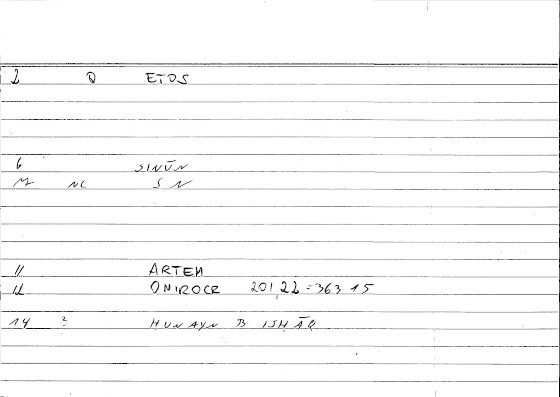 2 Q ETOS
6 SINŪN
M NC S N
11 ARTEM
12 ONIROCR 201,22=363 15
14 ? HUNAYN B ISḤĀQ